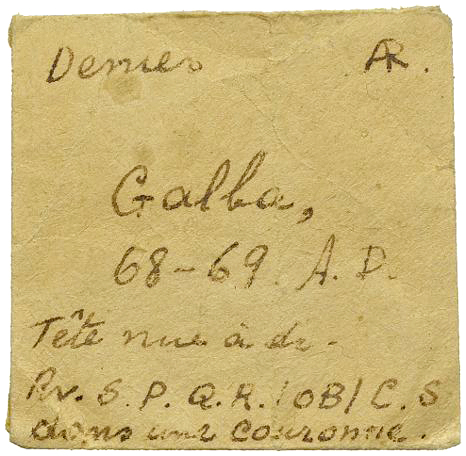 Denier AR.
Galba,
68-69. A. D.
Tête nue à dr.
Rv. S. P. Q. R. / OB / C. S
dans une couronne.